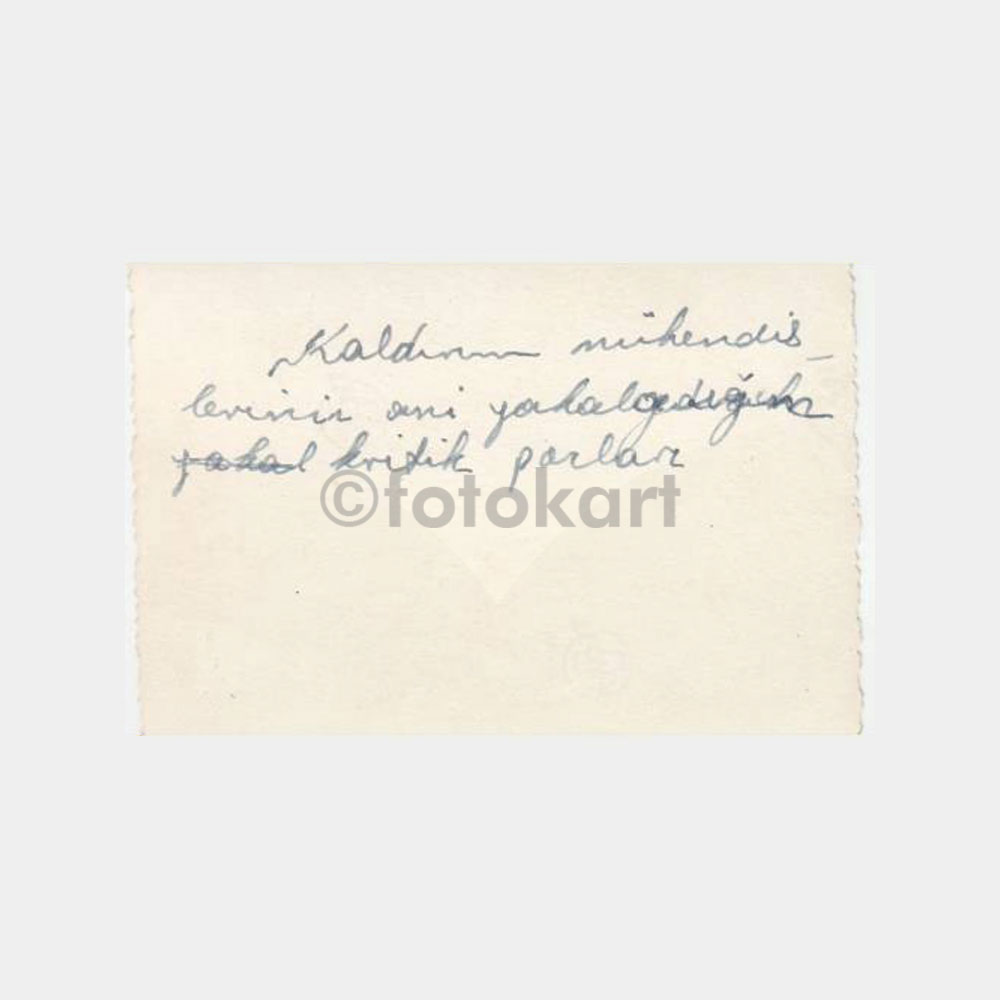 Kaldırım mühendis_
lerinin ani yakaladığım
yakal kritik pozlar
©fotokart